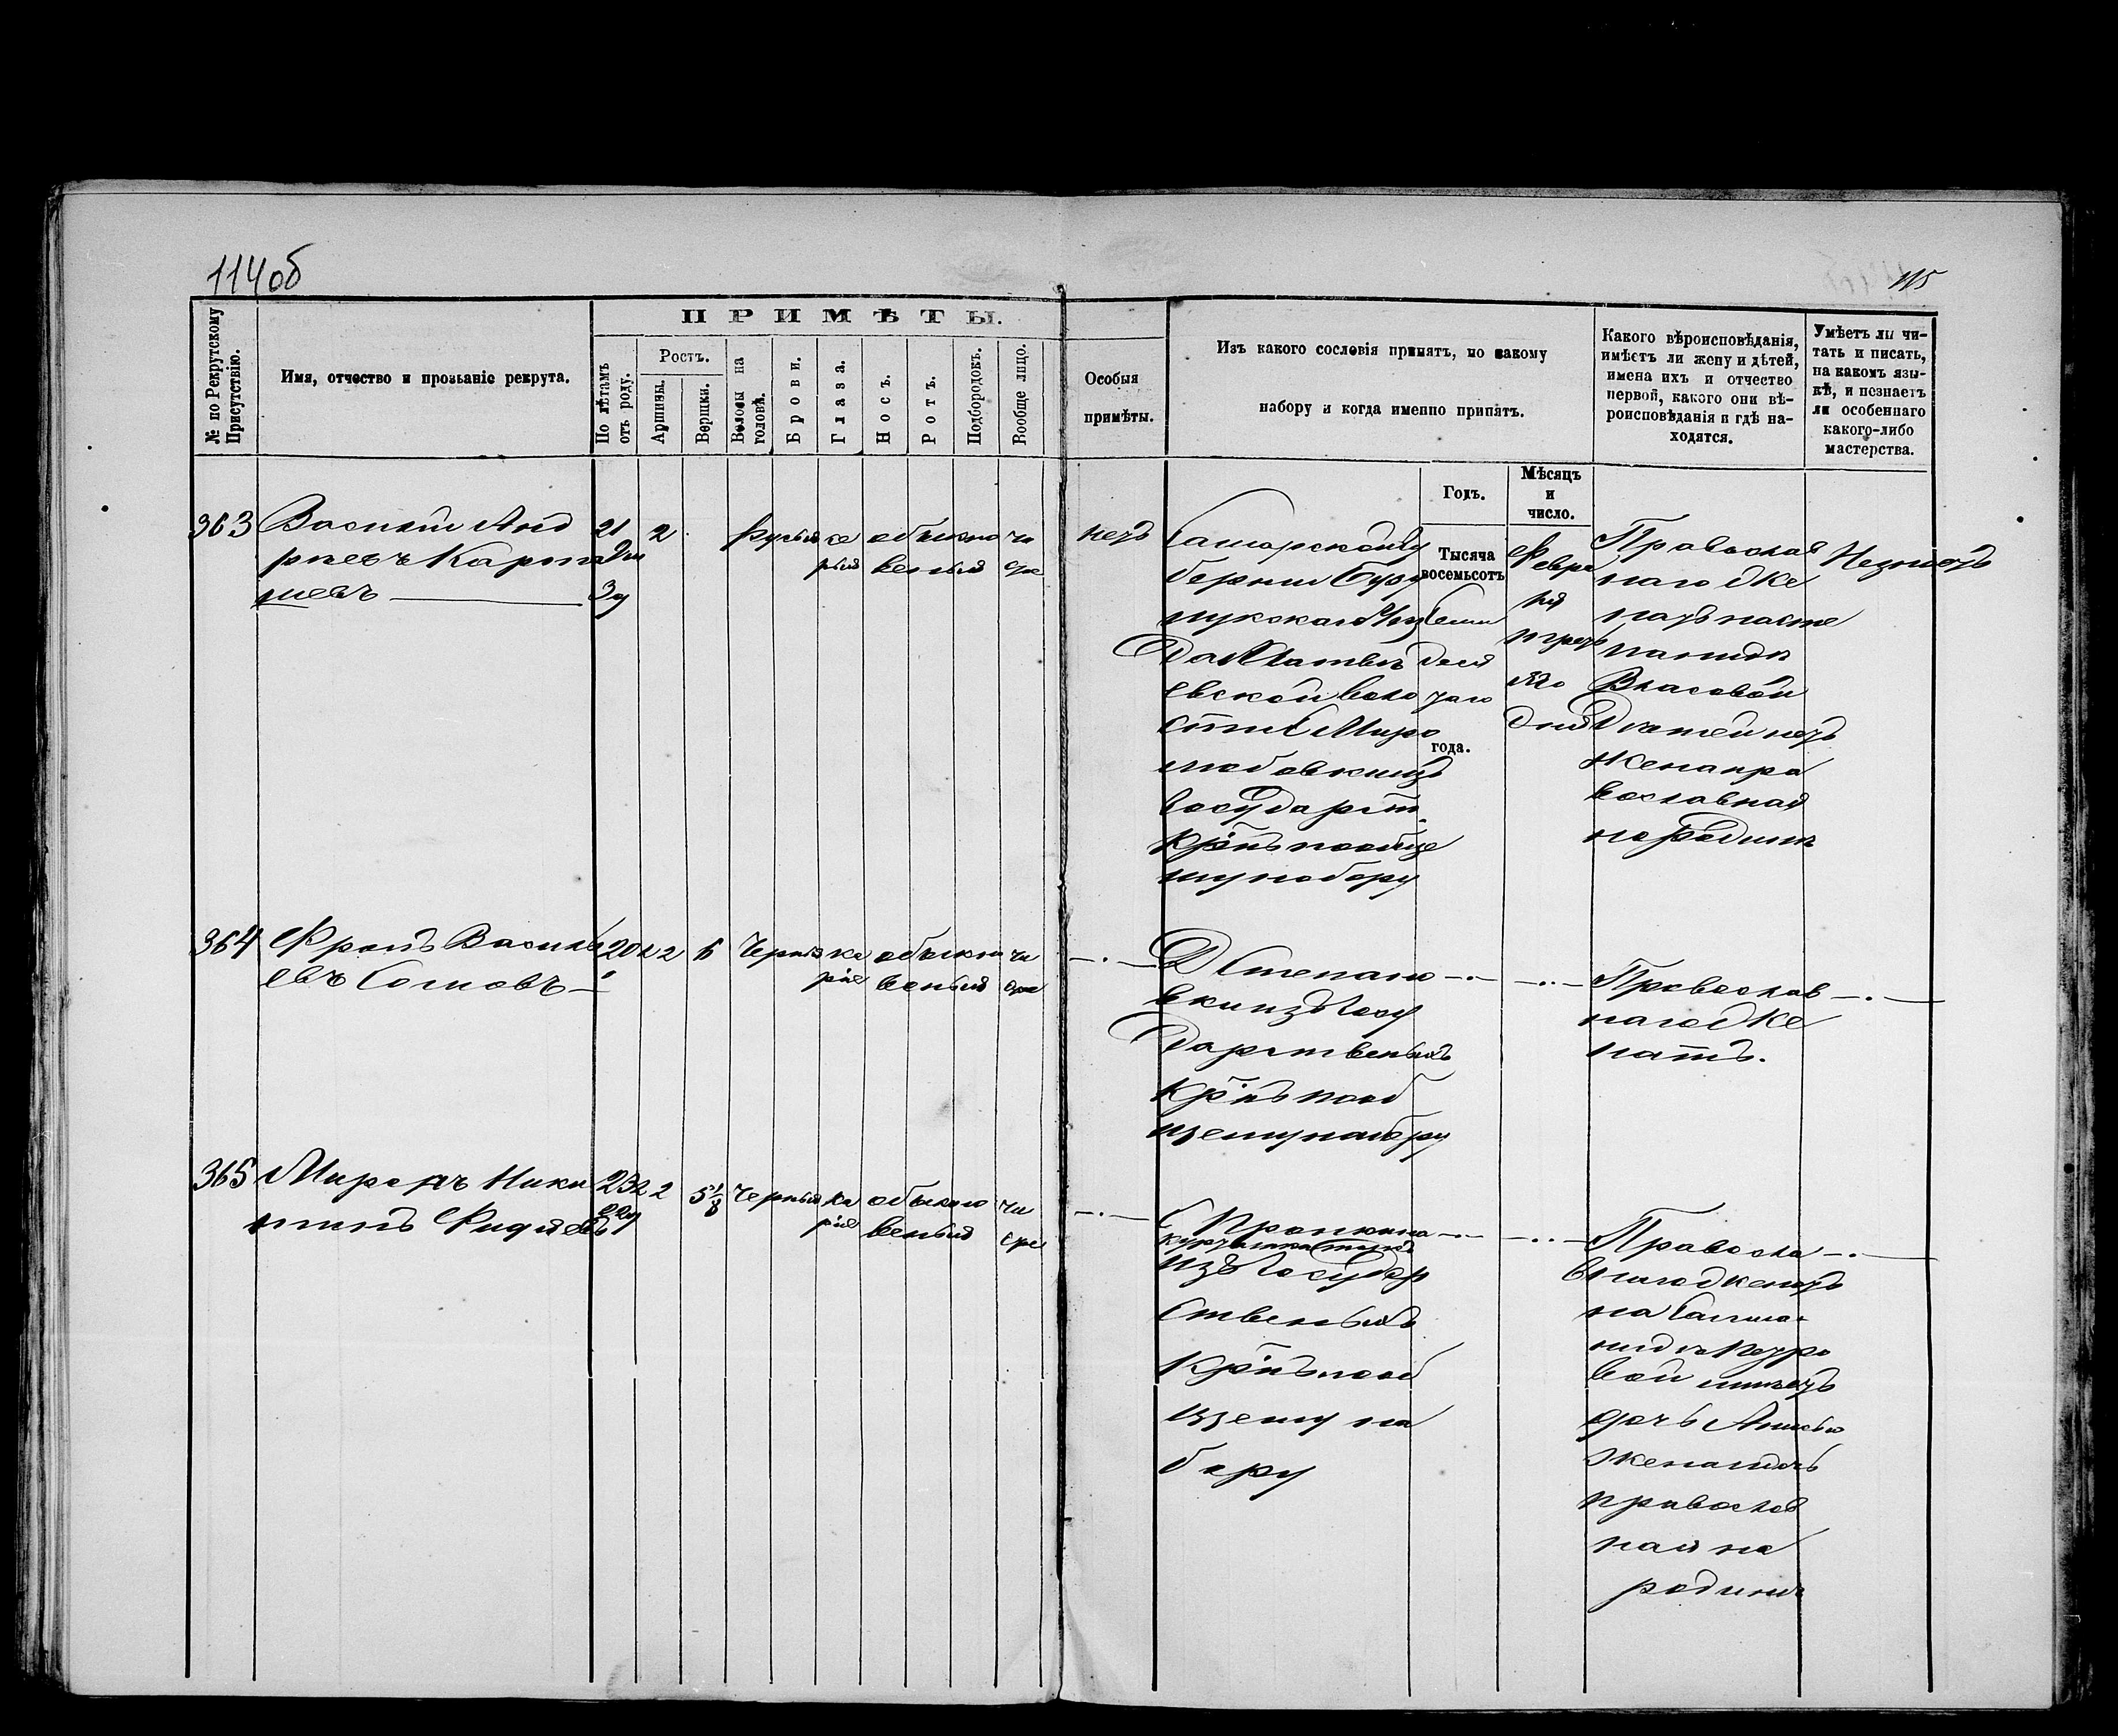 114об
115
ПРИМѢТЫ.
№ по Рекрутскому Присутствію.
Имя, отчество и прозваніе рекрута.
По лѣтамъ отъ роду.
Ростъ.
Аршины.
Вершки.
Волосы на головѣ.
Брови.
Глаза.
Носъ.
Ротъ.
Подбородокъ.
Вообще лицо.
Особыя
примѣты.
Изъ какого сословія принятъ, по какому
набору и когда именно принятъ.
Какого вѣроисповѣданія,
имѣетъ ли жену и дѣтей,
имена ихъ и отчество
первой, какого они вѣ-
роисповѣданія и гдѣ на-
ходятся.
Умѣетъ ли чи-
тать и писать,
на какомъ язы-
кѣ, и незнаетъ
ли особеннаго
какого-либо
мастерства.
Годъ.
Мѣсяцъ
и
число.
363
Василій Анд
реевъ
21
2
русыя
ка
рыя
обыкно
веный
чи
сое
нетъ
Самарской Гу
берніи Бузу
лукскаго Уез
да Матве
евской воло
сти С Миро
любовки изъ
Государст.
Крѣнъ пообще
му набору
Тысяча
восемьсотъ
семи
деся
таго
года.
Февра
ля
треть
яго
дня
Православ
наго же
натъ на Сте
паниде
Власовой
Детей нетъ
жена пра
вославная
на родине
Неумеетъ
364
Фролъ Василь
евъ Сомовъ
20
2
6
Черныя
ка
ріе
обыкно
веный
чи
сое
Д Степано
вки изъ Госу
дарственыхъ
Крѣнъ пооб
щему набору
Православ
наго же
натъ.
365
Миронъ Ники
тинъ
23
2
5 1/8
Черныя
ка
ріе
обыкно
веный
чи
сое
С Пронкина
изъ Государ
ственыхъ
Крѣнъ пооб
щему на
бору
Правосла
внаго женатъ
на
Петро
вой имеетъ
дочь
жена и дочь
православ
ная на
родине